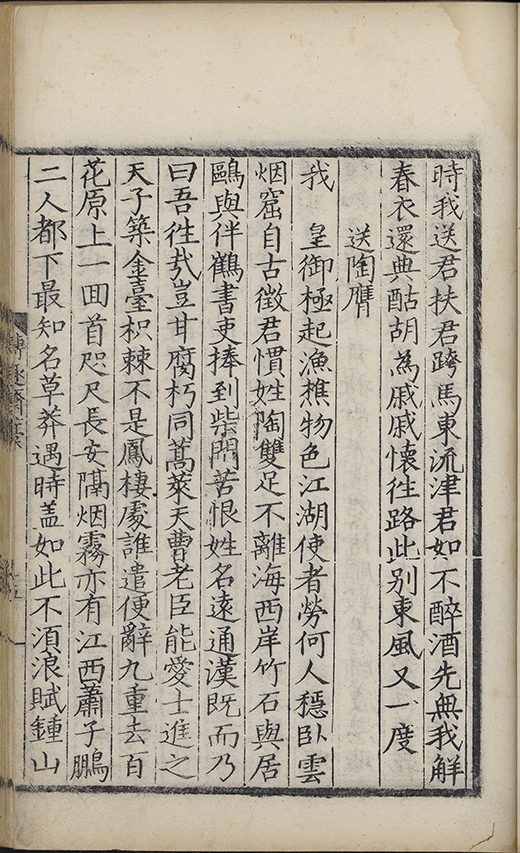 時我送君扶君跨馬東流津君如不醉酒先無我解
春衣還典酤胡為戚戚懷徃路此别東風又一度
送陶膺
我　皇御極起漁樵物色江湖使者勞何人穩卧雲
烟窟自古徵君慣姓陶雙足不離海西岸竹石與居
鷗與伴鶴書吏捧到柴關苦恨姓名遠通漢既而乃
曰吾徃㢤豈甘腐朽同蒿萊天曹老臣能愛士進之
天子築金臺枳棘不是鳳棲處誰遣便辭九重去百
花原上一回首咫尺長安隔烟霧亦有江西蕭子鵬
二人都下最知名草莽遇時盖如此不湏浪賦鍾山